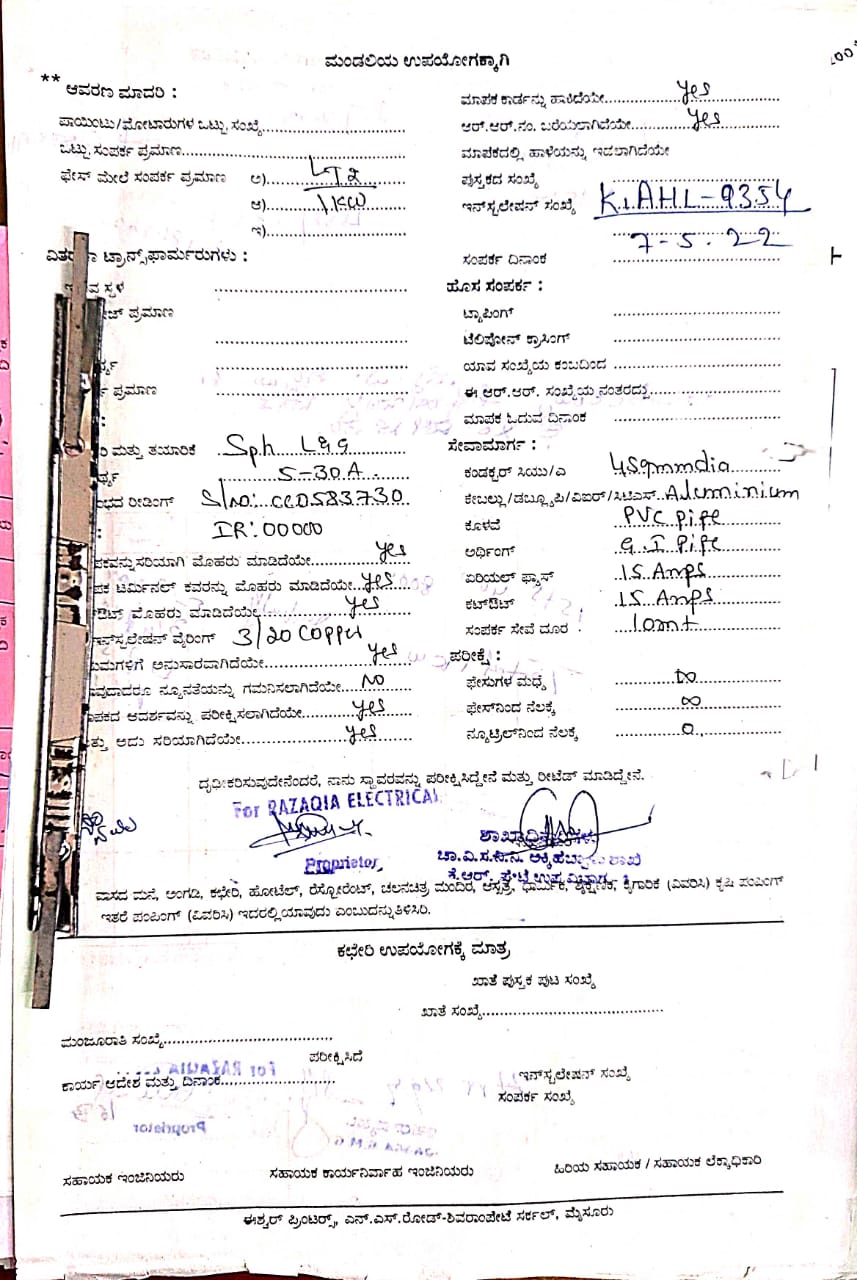 ಮಂಡಲಿಯ ಉಪಯೋಗಕ್ಕಾಗಿ
** ಆವರಣ ಮಾದರಿ :
ಪಾಯಿಂಟು/ಮೋಟಾರುಗಳ ಒಟ್ಟು ಸಂಖ್ಯೆ
ಒಟ್ಟು ಸಂಪರ್ಕ ಪ್ರಮಾಣ
ಫೇಸ್ ಮೇಲೆ ಸಂಪರ್ಕ ಪ್ರಮಾಣ ಅ) LT2
ಆ) 1KW
ಇ)
ಟ್ರಾನ್ಸ್‌ಫಾರ್ಮರುಗಳು :
ಸ್ಥಳ
ಪ್ರಮಾಣ
ಪ್ರಮಾಣ
ಮತ್ತು ತಯಾರಿಕೆ Sph L&G
5-30A
ರೀಡಿಂಗ್ S/no: CC0583730
IR: 00000
ಸರಿಯಾಗಿ ಮೊಹರು ಮಾಡಿದೆಯೇ yes
ಟರ್ಮಿನಲ್ ಕವರನ್ನು ಮೊಹರು ಮಾಡಿದೆಯೇ yes
ಮೊಹರು ಮಾಡಿದೆಯೇ yes
ವೈರಿಂಗ್ 3/20 Copper
ಅನುಸಾರವಾಗಿದೆಯೇ yes
ನ್ಯೂನತೆಯನ್ನು ಗಮನಿಸಲಾಗಿದೆಯೇ NO
ಆದರ್ಶವನ್ನು ಪರೀಕ್ಷಿಸಲಾಗಿದೆಯೇ yes
ಅದು ಸರಿಯಾಗಿದೆಯೇ yes
ಮಾಪಕ ಕಾರ್ಡನ್ನು ಹಾಕಿದೆಯೇ yes
ಆರ್.ಆರ್.ನಂ. ಬರೆಯಲಾಗಿದೆಯೇ yes
ಮಾಪಕದಲ್ಲಿ ಹಾಳೆಯನ್ನು ಇಡಲಾಗಿದೆಯೇ
ಪುಸ್ತಕದ ಸಂಖ್ಯೆ
ಇನ್‌ಸ್ಟಲೇಷನ್ ಸಂಖ್ಯೆ K1AHL-9354
7-5.22
ಸಂಪರ್ಕ ದಿನಾಂಕ
ಹೊಸ ಸಂಪರ್ಕ :
ಟ್ಯಾಪಿಂಗ್
ಟೆಲಿಫೋನ್ ಕ್ರಾಸಿಂಗ್
ಯಾವ ಸಂಖ್ಯೆಯ ಕಂಬದಿಂದ
ಈ ಆರ್.ಆರ್. ಸಂಖ್ಯೆಯ ನಂತರದ್ದು
ಮಾಪಕ ಓದುವ ದಿನಾಂಕ
ಸೇವಾಮಾರ್ಗ :
ಕಂಡಕ್ಟರ್ ಸಿಯು/ಎ 4sqmmdia
ಕೇಬಲ್ಲು/ಡಬ್ಲ್ಯೂಪಿ/ವಿಐರ್/ಸಿಟಿಎಸ್ Aluminium
ಕೊಳವೆ PVC pipe
ಅರ್ಥಿಂಗ್ G.I pipe
ಏರಿಯಲ್ ಫ್ಯೂಸ್ 15 Amps
ಕಟ್‌ಔಟ್ 15 Amps
ಸಂಪರ್ಕ ಸೇವೆ ದೂರ 10mt
ಪರೀಕ್ಷೆ :
ಫೇಸುಗಳ ಮಧ್ಯೆ ∞
ಫೇಸ್‌ನಿಂದ ನೆಲಕ್ಕೆ ∞
ನ್ಯೂಟ್ರಲ್‌ನಿಂದ ನೆಲಕ್ಕೆ 0
ದೃಢೀಕರಿಸುವುದೇನೆಂದರೆ, ನಾನು ಸ್ಥಾವರವನ್ನು ಪರೀಕ್ಷಿಸಿದ್ದೇನೆ ಮತ್ತು ರೀಟೆಡ್ ಮಾಡಿದ್ದೇನೆ.
For RAZAQIA ELECTRICAL
Proprietor
ವಾಸದ ಮನೆ, ಅಂಗಡಿ, ಕಛೇರಿ, ಹೋಟೆಲ್, ರೆಸ್ಟೋರೆಂಟ್, ಚಲನಚಿತ್ರ ಮಂದಿರ, ಆಸ್ಪತ್ರೆ, ಧಾರ್ಮಿಕ, ಶೈಕ್ಷಣಿಕ, ಕೈಗಾರಿಕೆ (ವಿವರಿಸಿ) ಕೃಷಿ ಪಂಪಿಂಗ್
ಇತರೆ ಪಂಪಿಂಗ್ (ವಿವರಿಸಿ) ಇದರಲ್ಲಿ ಯಾವುದು ಎಂಬುದನ್ನು ತಿಳಿಸಿರಿ.
ಕಛೇರಿ ಉಪಯೋಗಕ್ಕೆ ಮಾತ್ರ
ಖಾತೆ ಪುಸ್ತಕ ಪುಟ ಸಂಖ್ಯೆ
ಖಾತೆ ಸಂಖ್ಯೆ
ಮಂಜೂರಾತಿ ಸಂಖ್ಯೆ
ಪರೀಕ್ಷಿಸಿದೆ
ಕಾರ್ಯ ಆದೇಶ ಮತ್ತು ದಿನಾಂಕ
ಇನ್‌ಸ್ಟಲೇಷನ್ ಸಂಖ್ಯೆ
ಸಂಪರ್ಕ ಸಂಖ್ಯೆ
ಸಹಾಯಕ ಇಂಜಿನಿಯರು
ಸಹಾಯಕ ಕಾರ್ಯನಿರ್ವಾಹ ಇಂಜಿನಿಯರು
ಹಿರಿಯ ಸಹಾಯಕ / ಸಹಾಯಕ ಲೆಕ್ಕಾಧಿಕಾರಿ
ಈಶ್ವರ್ ಪ್ರಿಂಟರ್ಸ್, ಎನ್.ಎಸ್.ರೋಡ್-ಶಿವರಾಂಪೇಟೆ ಸರ್ಕಲ್, ಮೈಸೂರು